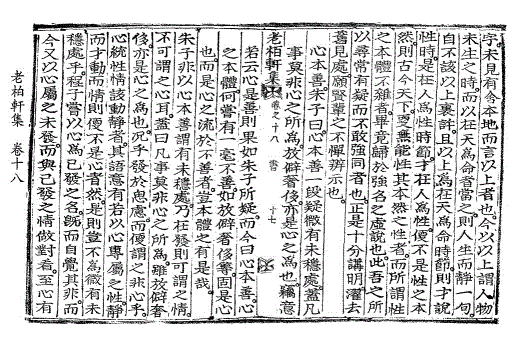 字未見有今本地而言以上者也今以以上謂人物
未生之時而以在天爲命者當之則人生而靜一句
自不該以上裏許且以上爲在天爲命時節則才說
性時是在人爲性時節才在人爲性便不是性之本
然則古今天下更無能性其本然之性者而所謂性
之本體不雜者畢竟歸於強名之虛說也此吾之所
以尋常有疑而不敢強同者也正是十分講明濯去
舊見處願賢輩之不憚辨示也
心本善朱子曰心本善一段疑微有未穩處蓋凡
事莫非心之所爲放僻奢侈亦是心之爲也竊意
老柏軒集 卷之十八 書 十七
若云心是善則果如朱子所疑而今曰心本善心
之本體何嘗有一毫不善如放僻奢侈等固是心
也而是心之流於不善者豈本體之有是哉
朱子非以心本善謂有未穩處乃在發則可謂之情
不可謂之心耳蓋曰凡事莫非心之所爲雖放僻奢
侈亦是心之爲也況乎發於思慮而便謂之非心乎
心統性情該動靜者其語意有若以心專屬之性靜
而才動而情則便不是心者然是則豈不爲微有未
穩處乎程子嘗以心爲已發之名旣而自覺其非而
今又以心屬之未發而與已發之情做對看至心有
老柏軒集 卷十八